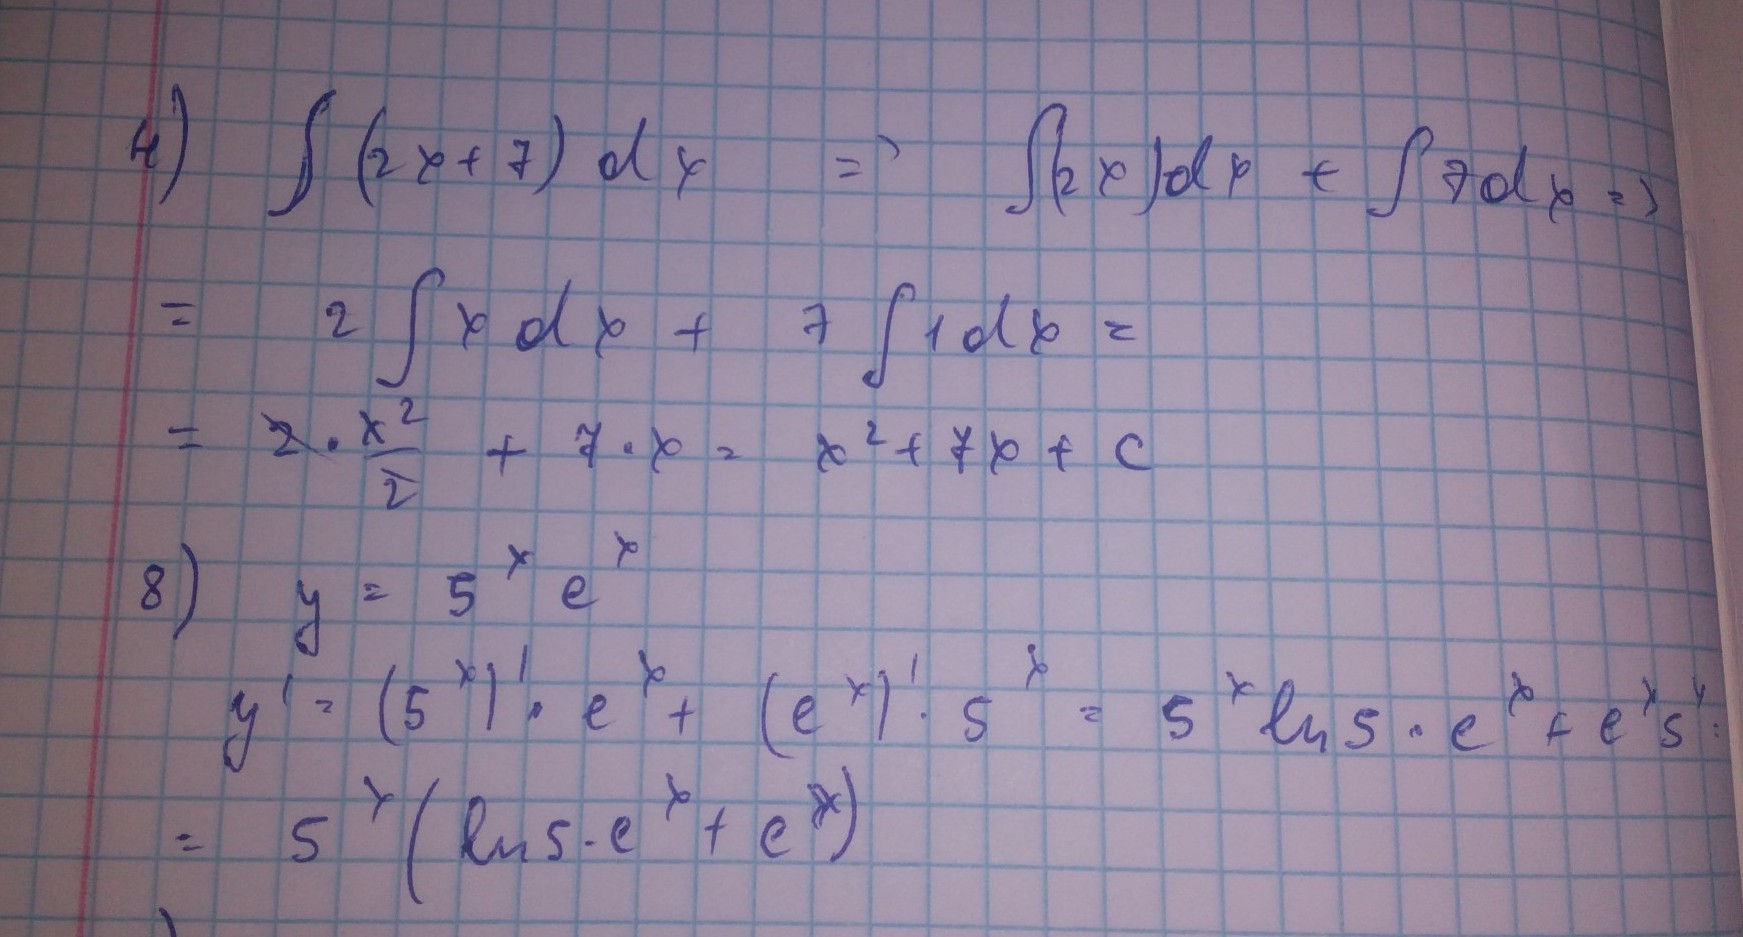 4) ∫ (2x+7) dx => ∫(2x)dx + ∫ 7dx =>
= 2 ∫ x dx + 7 ∫ 1dx =
= 2 · x²/2 + 7·x = x² + 7x + C
8) y = 5ˣ eˣ
y' = (5ˣ)' · eˣ + (eˣ)' · 5ˣ = 5ˣ ln 5 · eˣ + eˣ 5ˣ =
= 5ˣ (ln 5 · eˣ + eˣ)